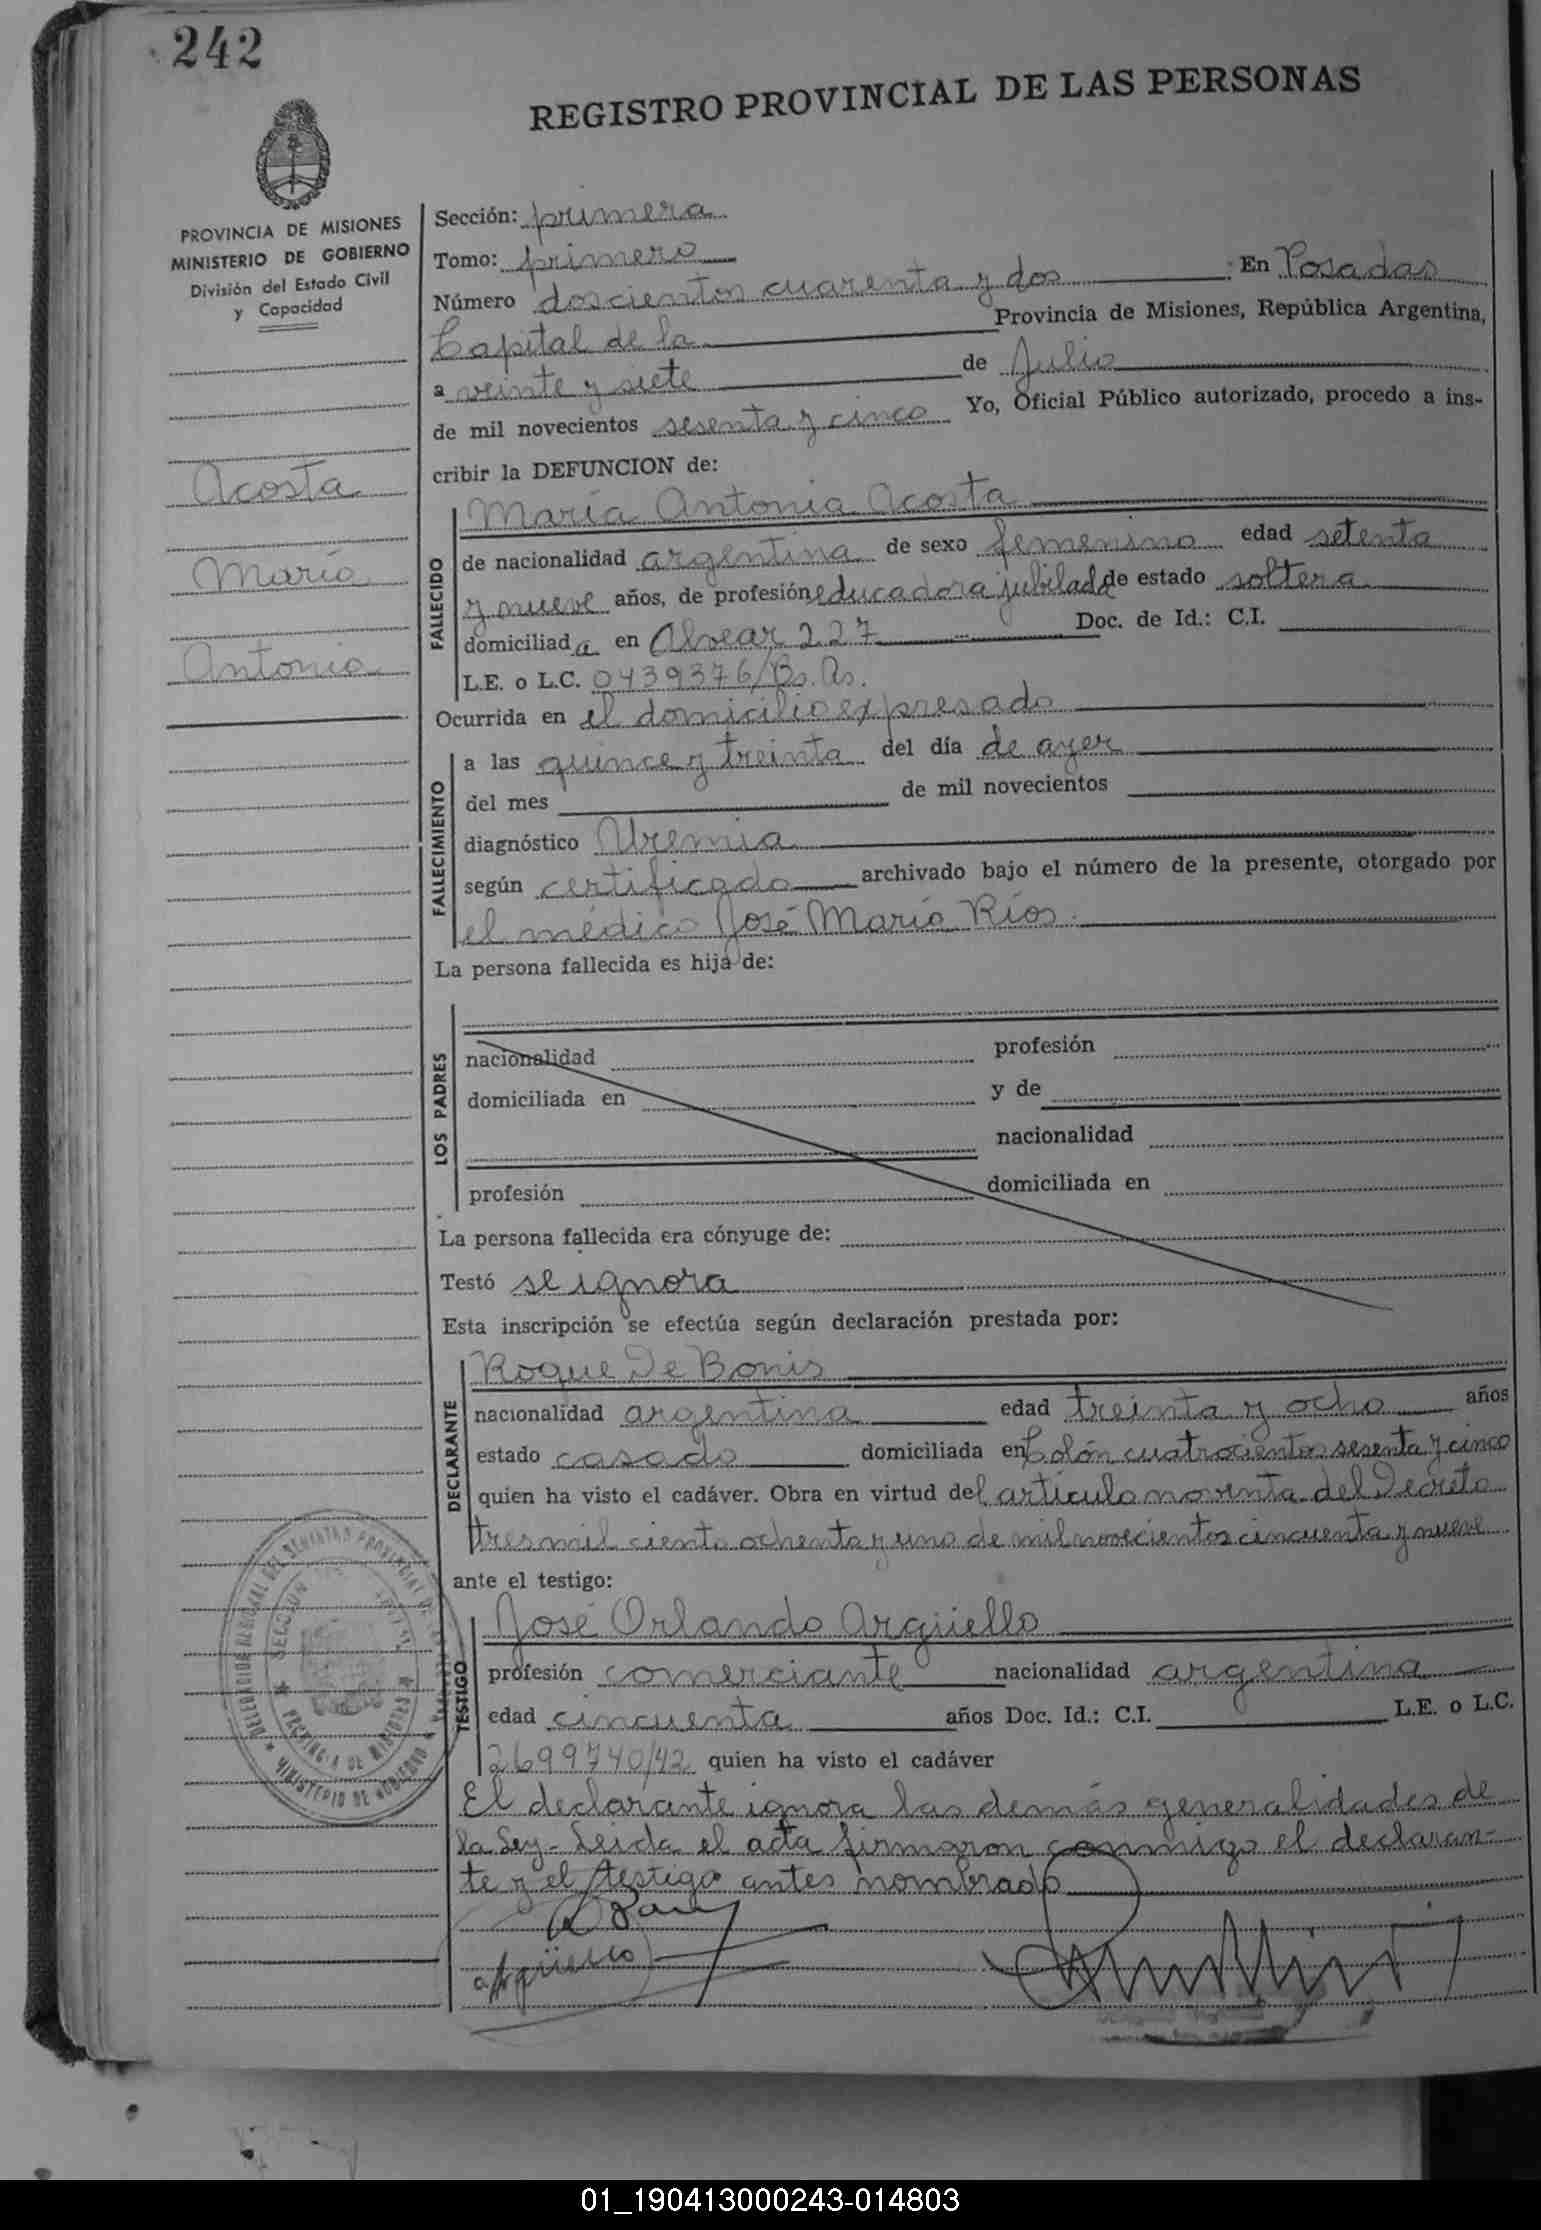 242
REGISTRO PROVINCIAL DE LAS PERSONAS
PROVINCIA DE MISIONES
MINISTERIO DE GOBIERNO
División del Estado Civil
y Capacidad
Acosta
María
Antonia
Sección: primera
Tomo: primero
Número doscientos cuarenta y dos En Posadas
Capital de la Provincia de Misiones, República Argentina,
a veinte y siete de Julio
de mil novecientos sesenta y cinco Yo, Oficial Público autorizado, procedo a ins-
cribir la DEFUNCION de:
FALLECIDO
María Antonia Acosta
de nacionalidad argentina de sexo femenino edad setenta
y nueve años, de profesión educadora jubilada de estado soltera
domiciliada en Alvear 227 Doc. de Id.: C.I.
L.E. o L.C. 0439376/Bs. As.
Ocurrida en el domicilio expresado
FALLECIMIENTO
a las quince y treinta del día de ayer
del mes de mil novecientos
diagnóstico Uremia
según certificado archivado bajo el número de la presente, otorgado por
el médico José María Ríos.
La persona fallecida es hija de:
LOS PADRES
nacionalidad profesión
domiciliada en y de
nacionalidad
profesión domiciliada en
La persona fallecida era cónyuge de:
Testó se ignora
Esta inscripción se efectúa según declaración prestada por:
DECLARANTE
Roque De Bonis
nacionalidad argentina edad treinta y ocho años
estado casado domiciliada en Colón cuatrocientos sesenta y cinco
quien ha visto el cadáver. Obra en virtud del artículo noventa del Decreto
tres mil ciento ochenta y uno de mil novecientos cincuenta y nueve
ante el testigo:
TESTIGO
José Orlando Argüello
profesión comerciante nacionalidad argentina
edad cincuenta años Doc. Id.: C.I. L.E. o L.C.
2699740/42 quien ha visto el cadáver
El declarante ignora las demás generalidades de
la Ley- Leida el acta firmaron conmigo el declaran-
te y el testigo antes nombrado
Argüello
DELEGACION REGIONAL DEL REGISTRO PROVINCIAL DE LAS PERSONAS
SECCION
PROVINCIA DE MISIONES
MINISTERIO DE GOBIERNO
01_190413000243-014803